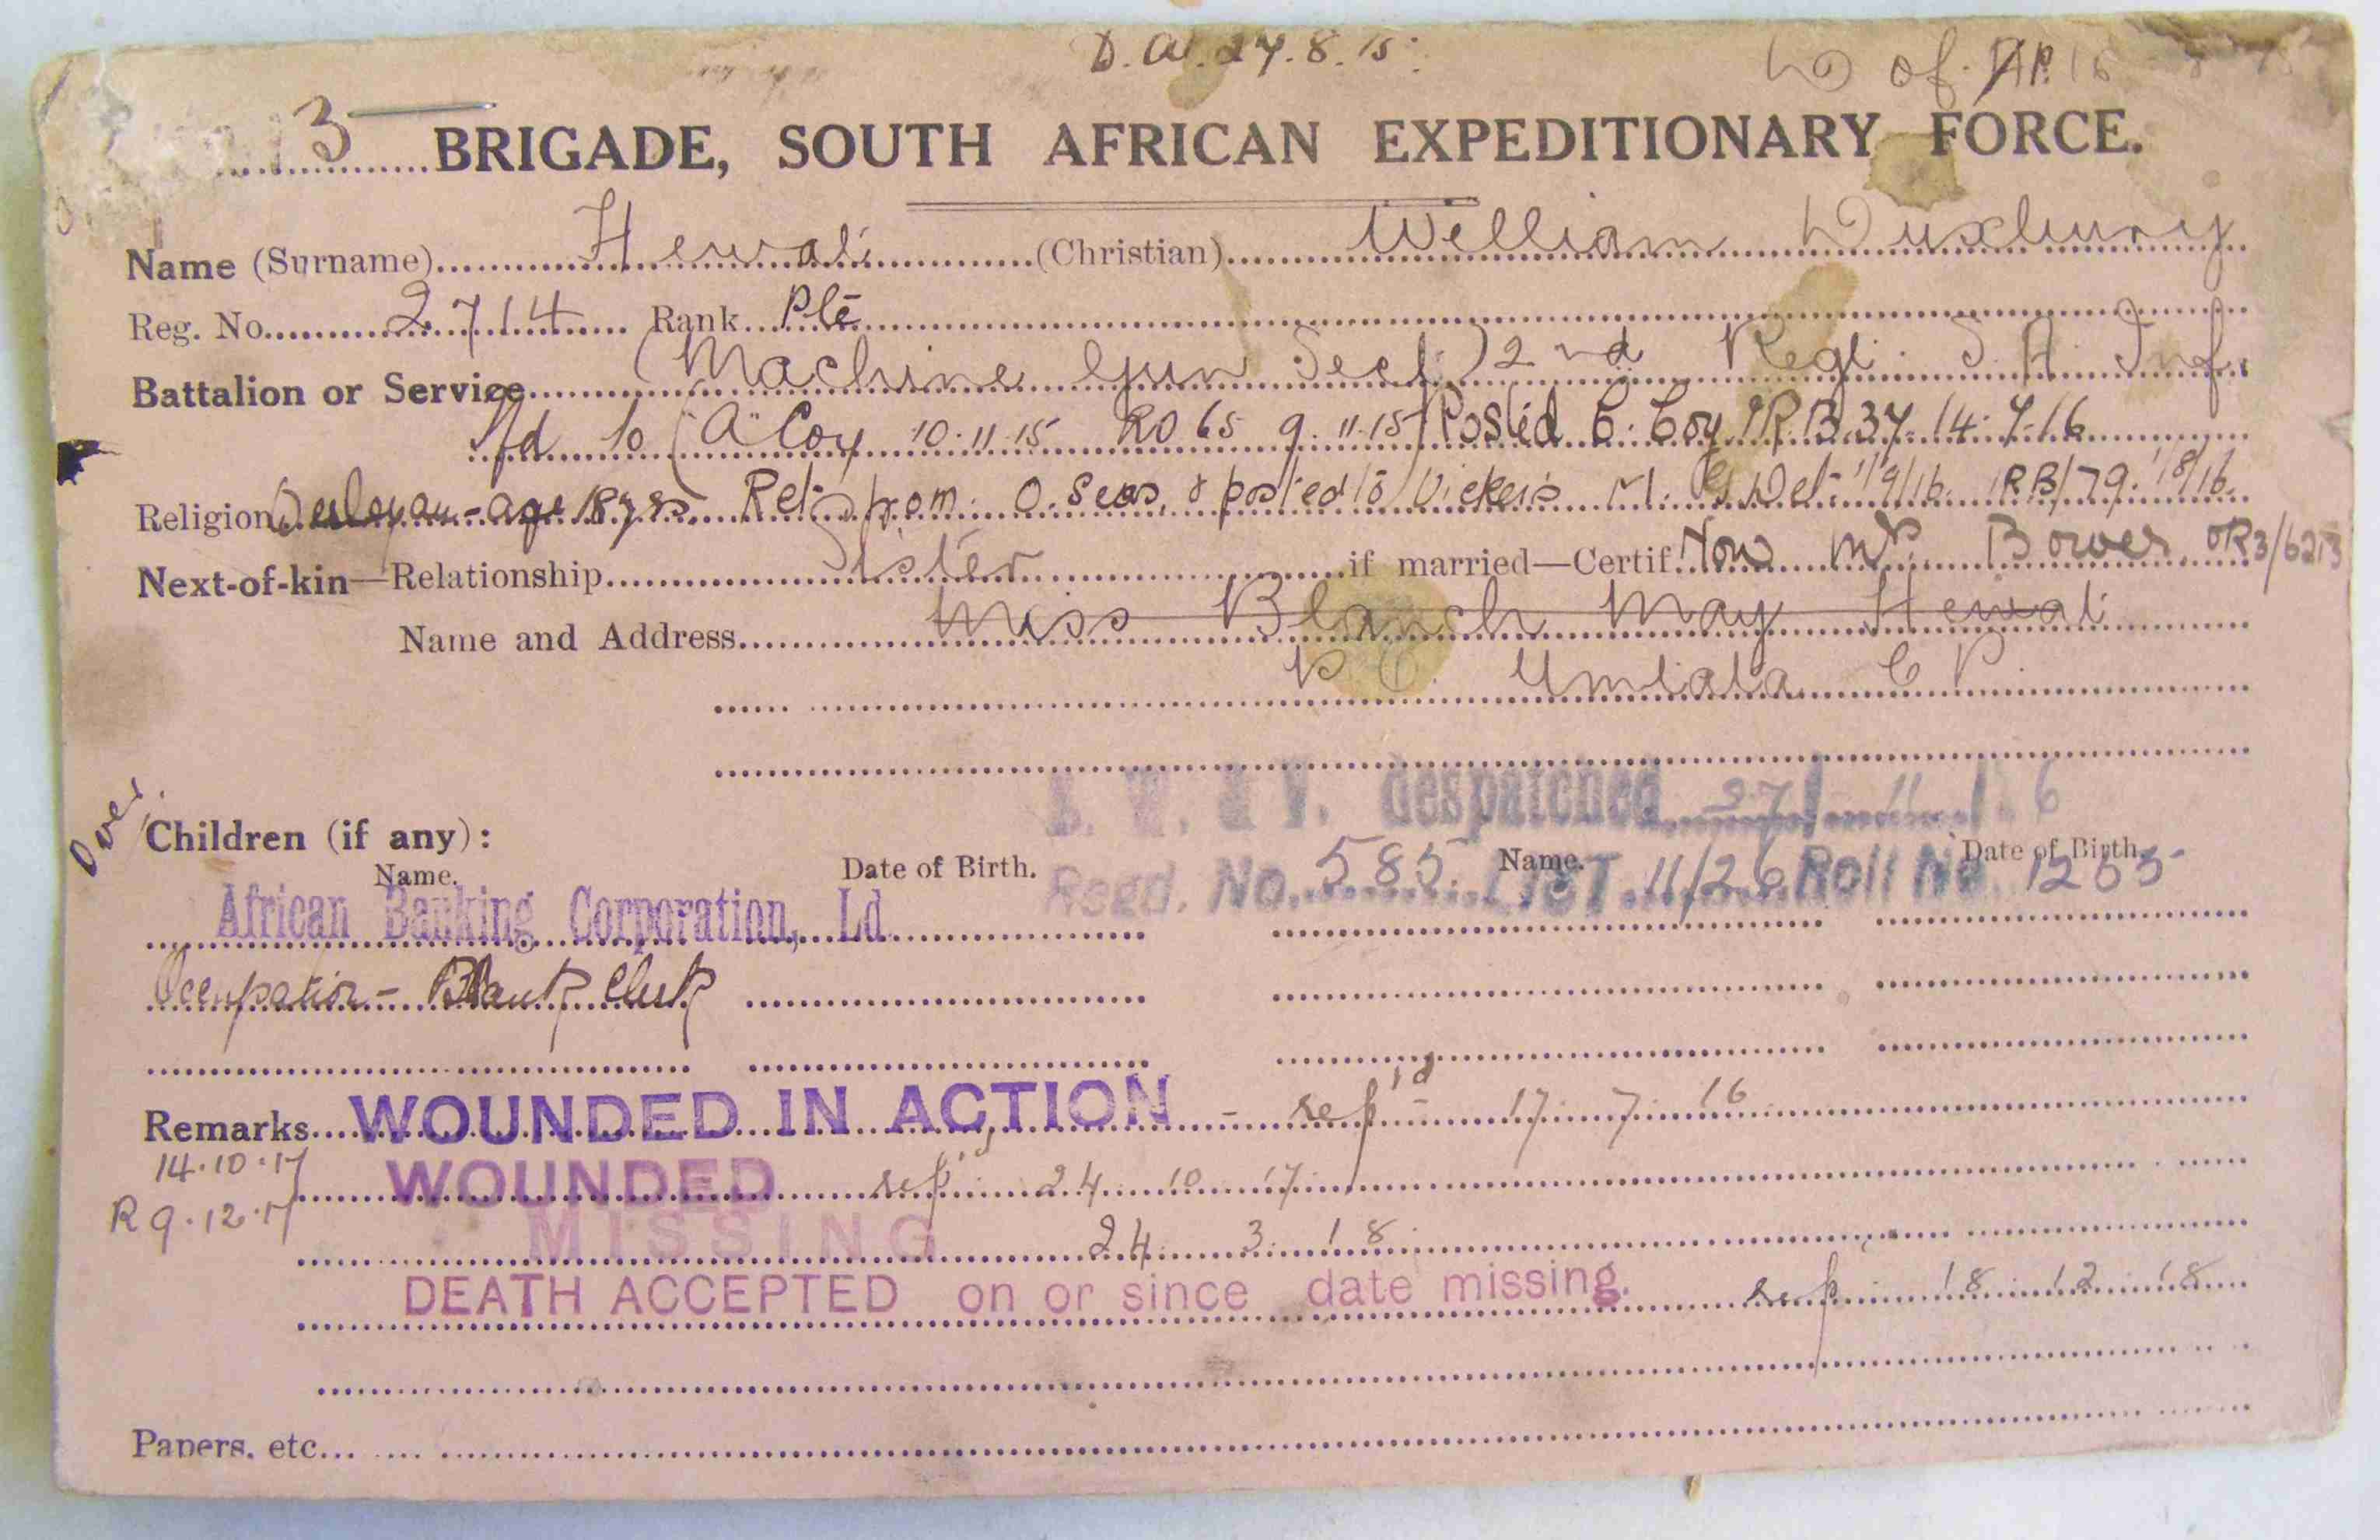 D.A. 27.8.15.
of
3 BRIGADE, SOUTH AFRICAN EXPEDITIONARY FORCE.
Name (Surname) Hewat (Christian) William Duxbury
Reg. No. 2714 Rank Pte
Battalion or Service (Machine Gun Sect) 2nd Regt. S. A. Inf.
tfd to "A" Coy 10.11.15 RO 65 9.11.15 Posted C. Coy PR. B. 37. 14.7.16
Religion Wesleyan - age 18 yrs. Ret. from O. Seas, & posted to Vickers M. G. Det. 1/9/16 RB/79. 1/8/16
Next-of-kin—Relationship Sister if married—Certif. Now Mrs. Bower OR3/6213
Name and Address Miss Blanch May Hewat
P O. Umtata C P.
despatched 27 / 11 / 16
Over
Children (if any):
Name. Date of Birth. Name. Date of Birth.
Regd. No. 585. LIST 11/26 Roll No. 1255
African Banking Corporation, Ld
Occupation - Bank Clerk
Remarks WOUNDED IN ACTION - rep'd - 17 7 16
14.10.17 WOUNDED rep'd 24 10 17
R 9.12.17 MISSING 24 3 18
DEATH ACCEPTED on or since date missing. rep 18 12 18
Papers, etc.